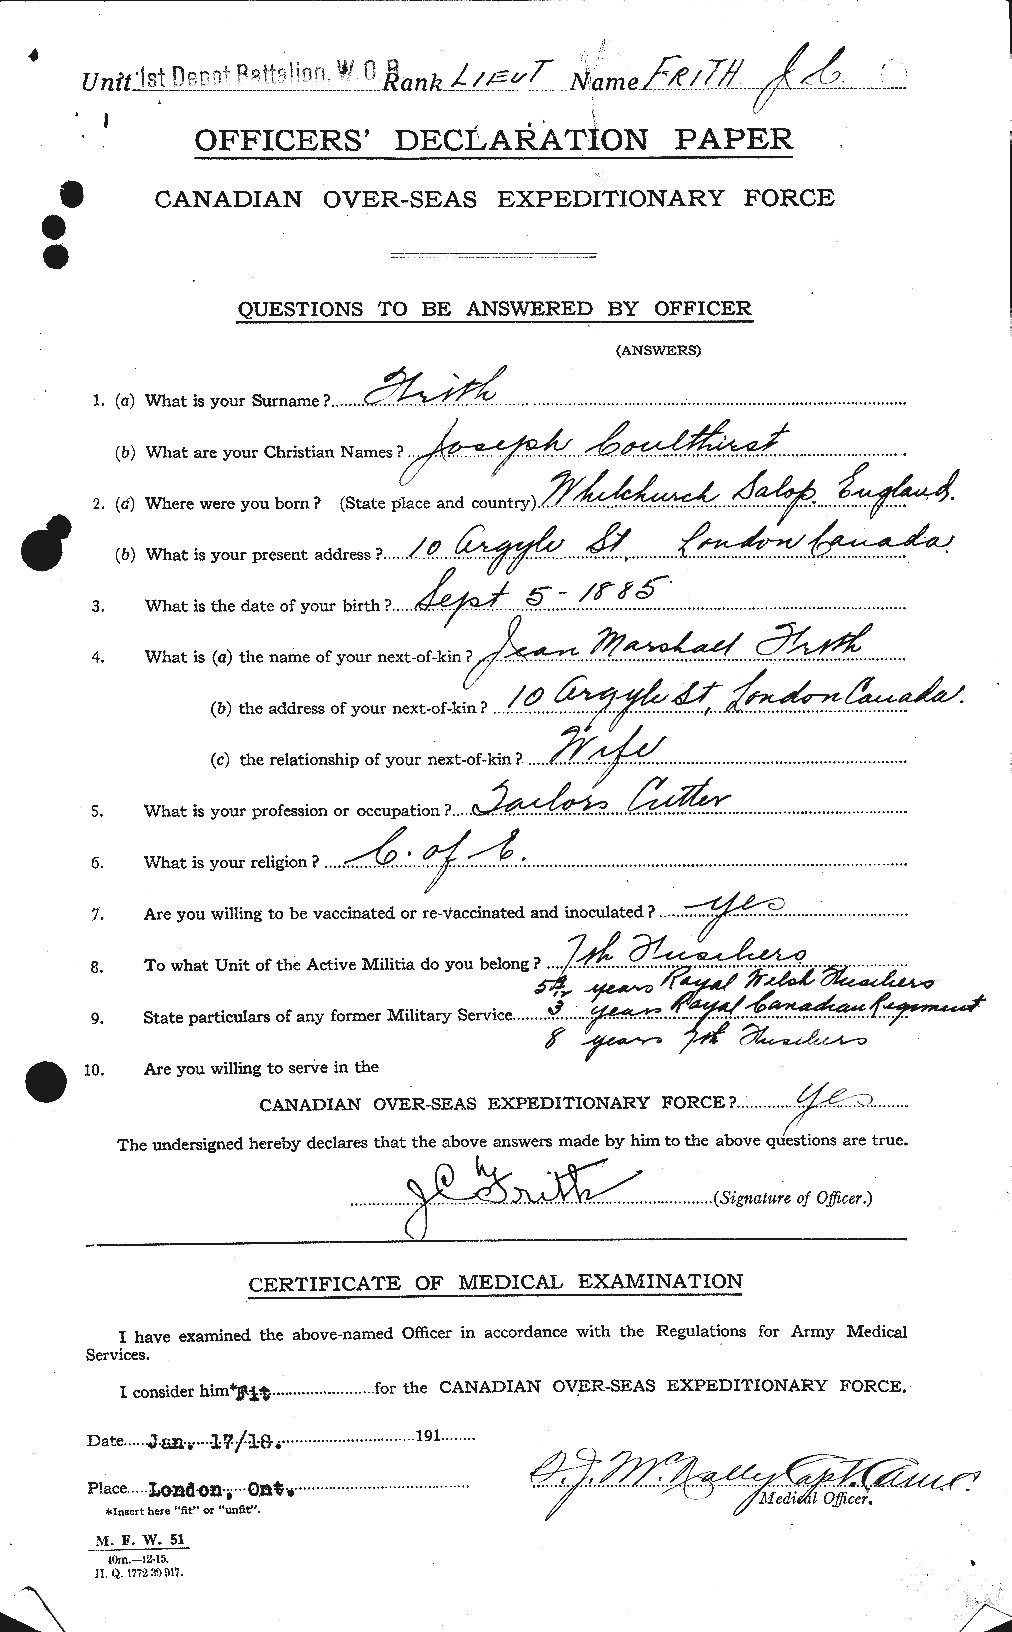 Unit 1st Depot Battalion. W.O.R. Rank LIEUT Name FRITH J C.
OFFICERS' DECLARATION PAPER
CANADIAN OVER-SEAS EXPEDITIONARY FORCE
QUESTIONS TO BE ANSWERED BY OFFICER
(ANSWERS)
1. (a) What is your Surname? Frith
(b) What are your Christian Names? Joseph Coulthirst
2. (a) Where were you born? (State place and country) Whitchurch Salop. England.
(b) What is your present address? 10 Argyle St, London Canada.
3. What is the date of your birth? Sept 5 - 1885
4. What is (a) the name of your next-of-kin? Jean Marshall Frith
(b) the address of your next-of-kin? 10 Argyle St, London Canada.
(c) the relationship of your next-of-kin? Wife
5. What is your profession or occupation? Tailors Cutter
6. What is your religion? C. of E.
7. Are you willing to be vaccinated or re-vaccinated and inoculated? yes
8. To what Unit of the Active Militia do you belong? 7th Fusiliers
years Royal Welsh Fusiliers
9. State particulars of any former Military Service 3 years Royal Canadian Regiment
8 years 7th Fusiliers
10. Are you willing to serve in the
CANADIAN OVER-SEAS EXPEDITIONARY FORCE? yes
The undersigned hereby declares that the above answers made by him to the above questions are true.
J C Frith (Signature of Officer.)
CERTIFICATE OF MEDICAL EXAMINATION
I have examined the above-named Officer in accordance with the Regulations for Army Medical
Services.
I consider him* Fit for the CANADIAN OVER-SEAS EXPEDITIONARY FORCE.
Date Jan. 17/18. 191
McNally Capt.
Place London, Ont.
Medical Officer.
*Insert here "fit" or "unfit".
M. F. W. 51
40m.—12-15.
H. Q. 1772 39 917.